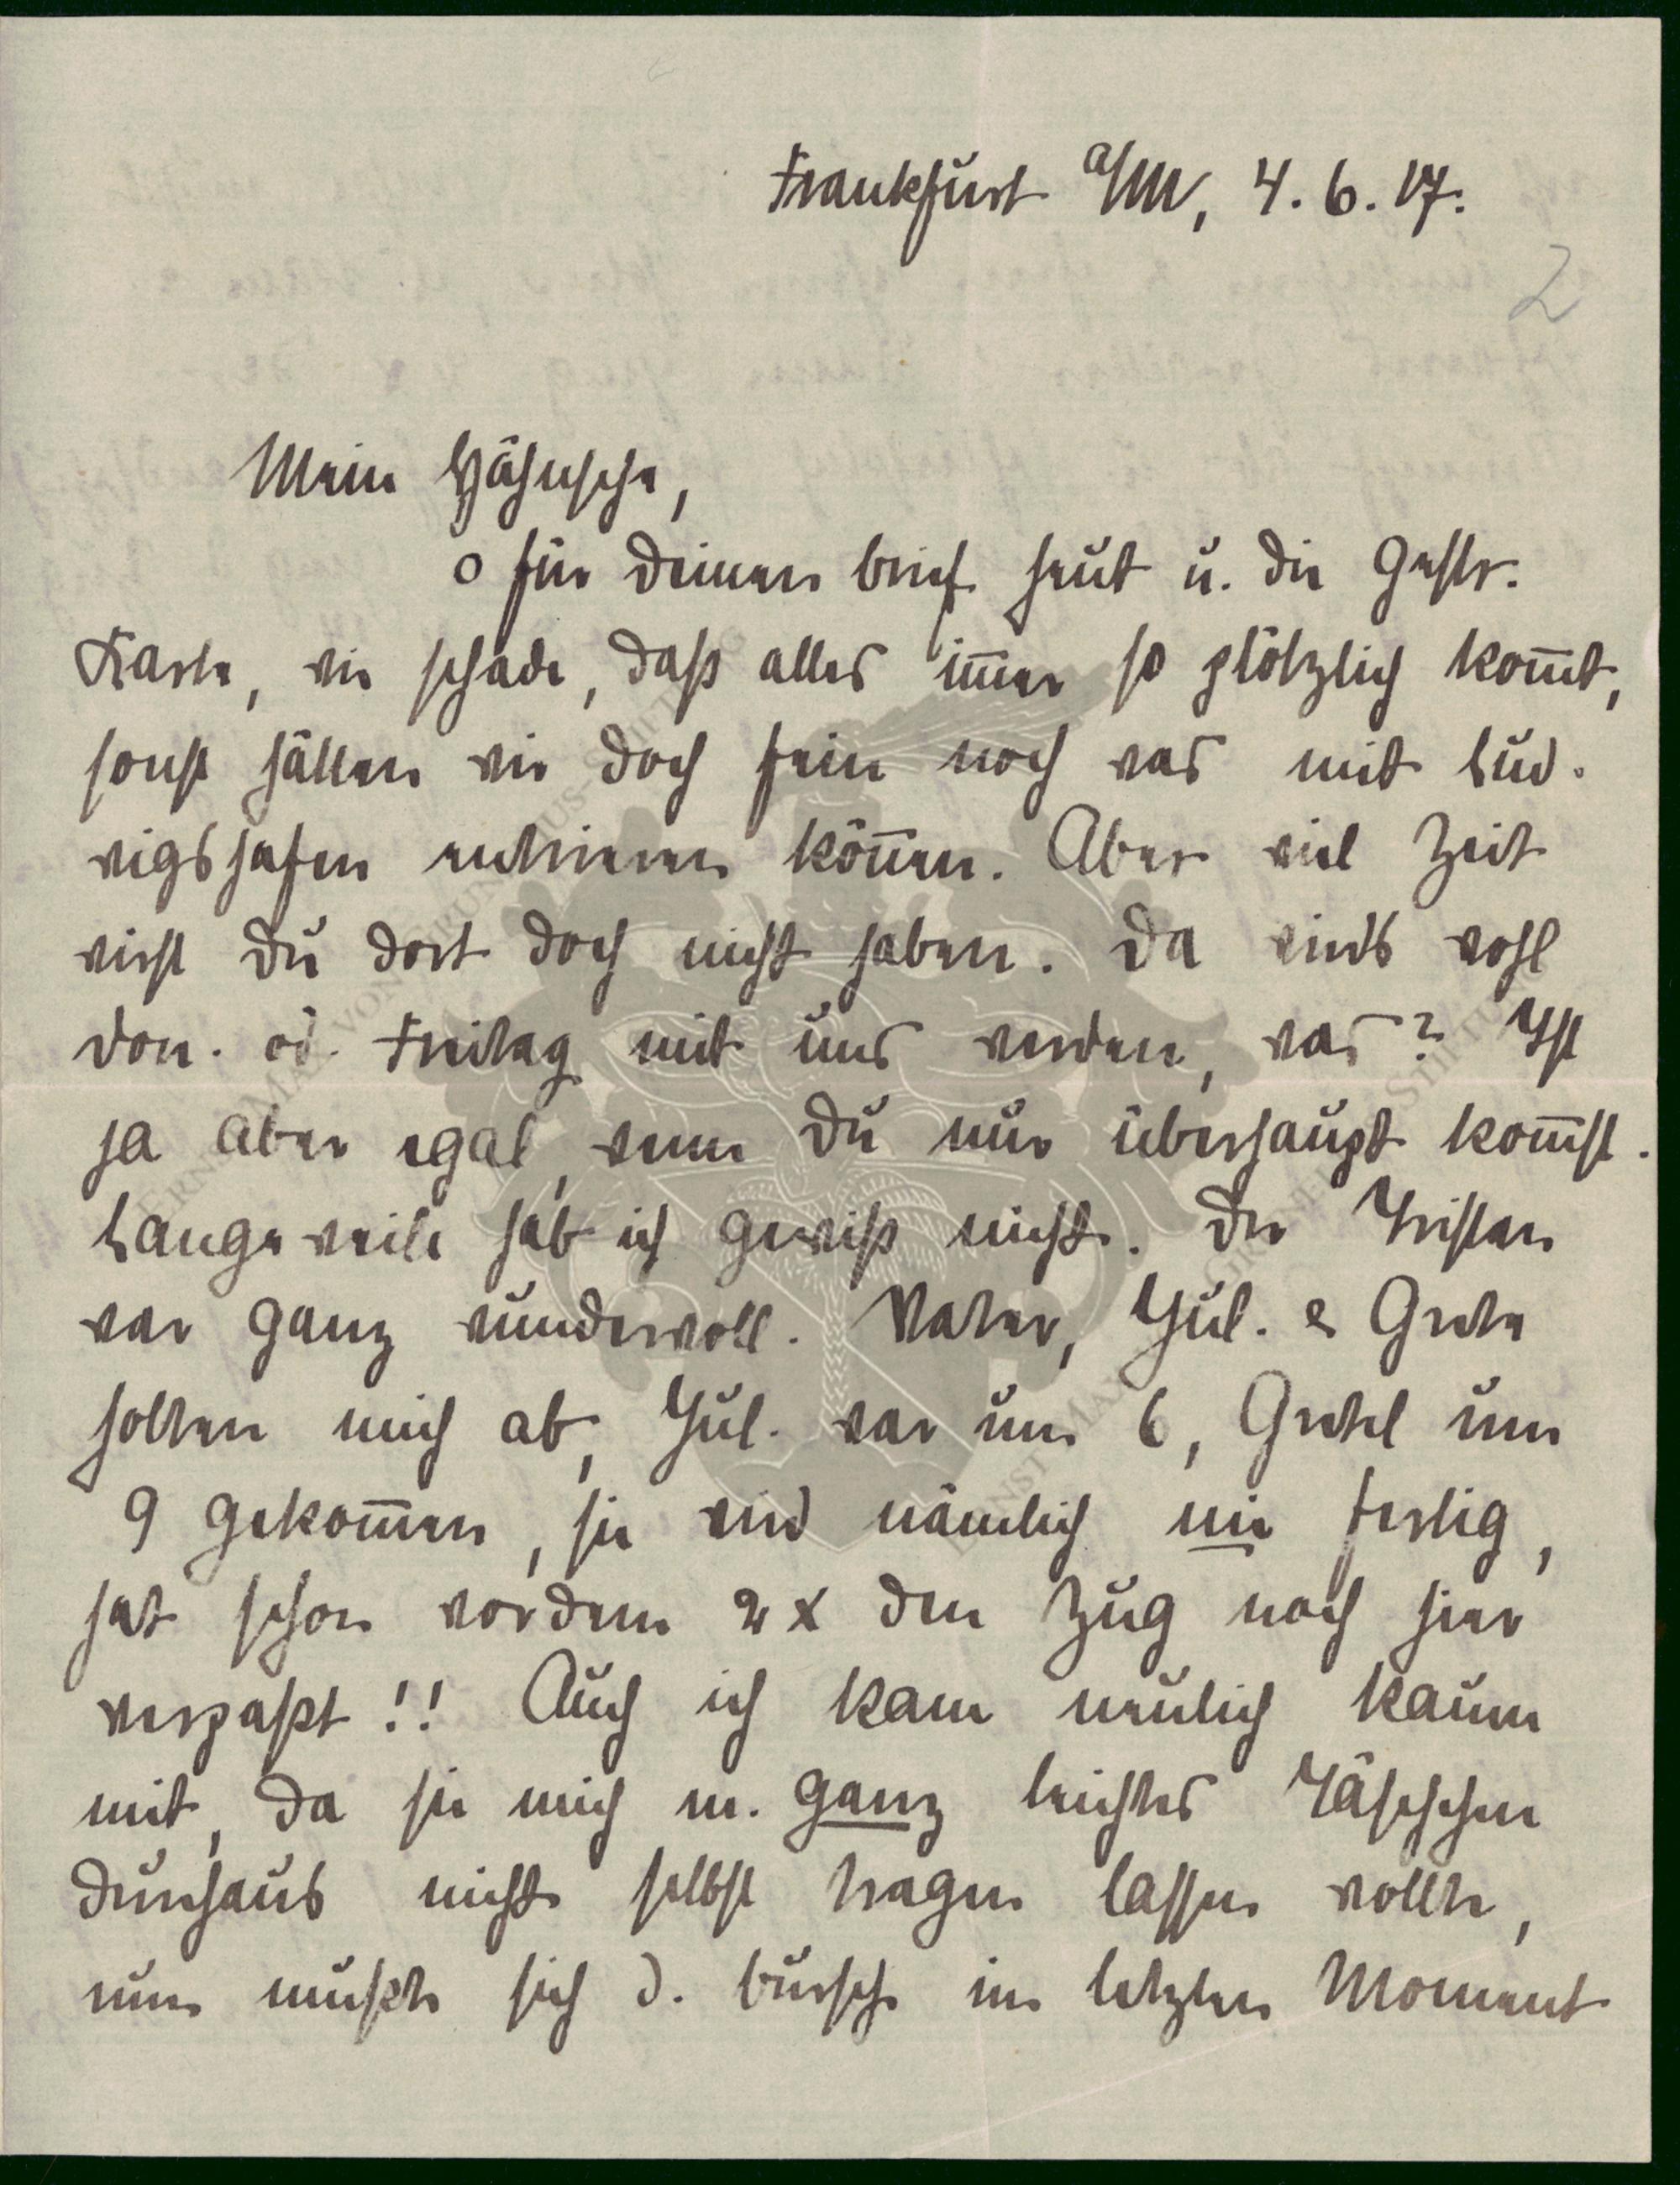 Frankfurt a/M, 4. 6. 17.
2
Mein Hähnsche,
o für Deinen Brief heut u. die gestr.
Karte, wie schade, daß alles im̅er so plötzlich kom̅t,
sonst hätten wir doch fein noch was mit Lud-
wigshafen entrieren kön̅en. Aber viel Zeit
wirst Du dort doch nicht haben. Da wirds wohl
Don. od. Freitag mit uns werden, was? Ist
ja aber egal, wenn Du nur überhaupt kom̅st.
Langeweile hab ich gewiß nicht. Der Tristan
war ganz wundervoll. Vater, Jul. & Grete
holten mich ab, Jul. war um 6, Gretel um
9 gekom̅en, sie wird nämlich nie fertig,
hat schon vordem 2x den Zug nach hier
verpaßt!! Auch ich kam neulich kaum
mit, da sie mich m. ganz leichtes Täschchen
durchaus nicht selbst tragen lassen wollte,
nun mußte sich d. Bursche im letzten Moment